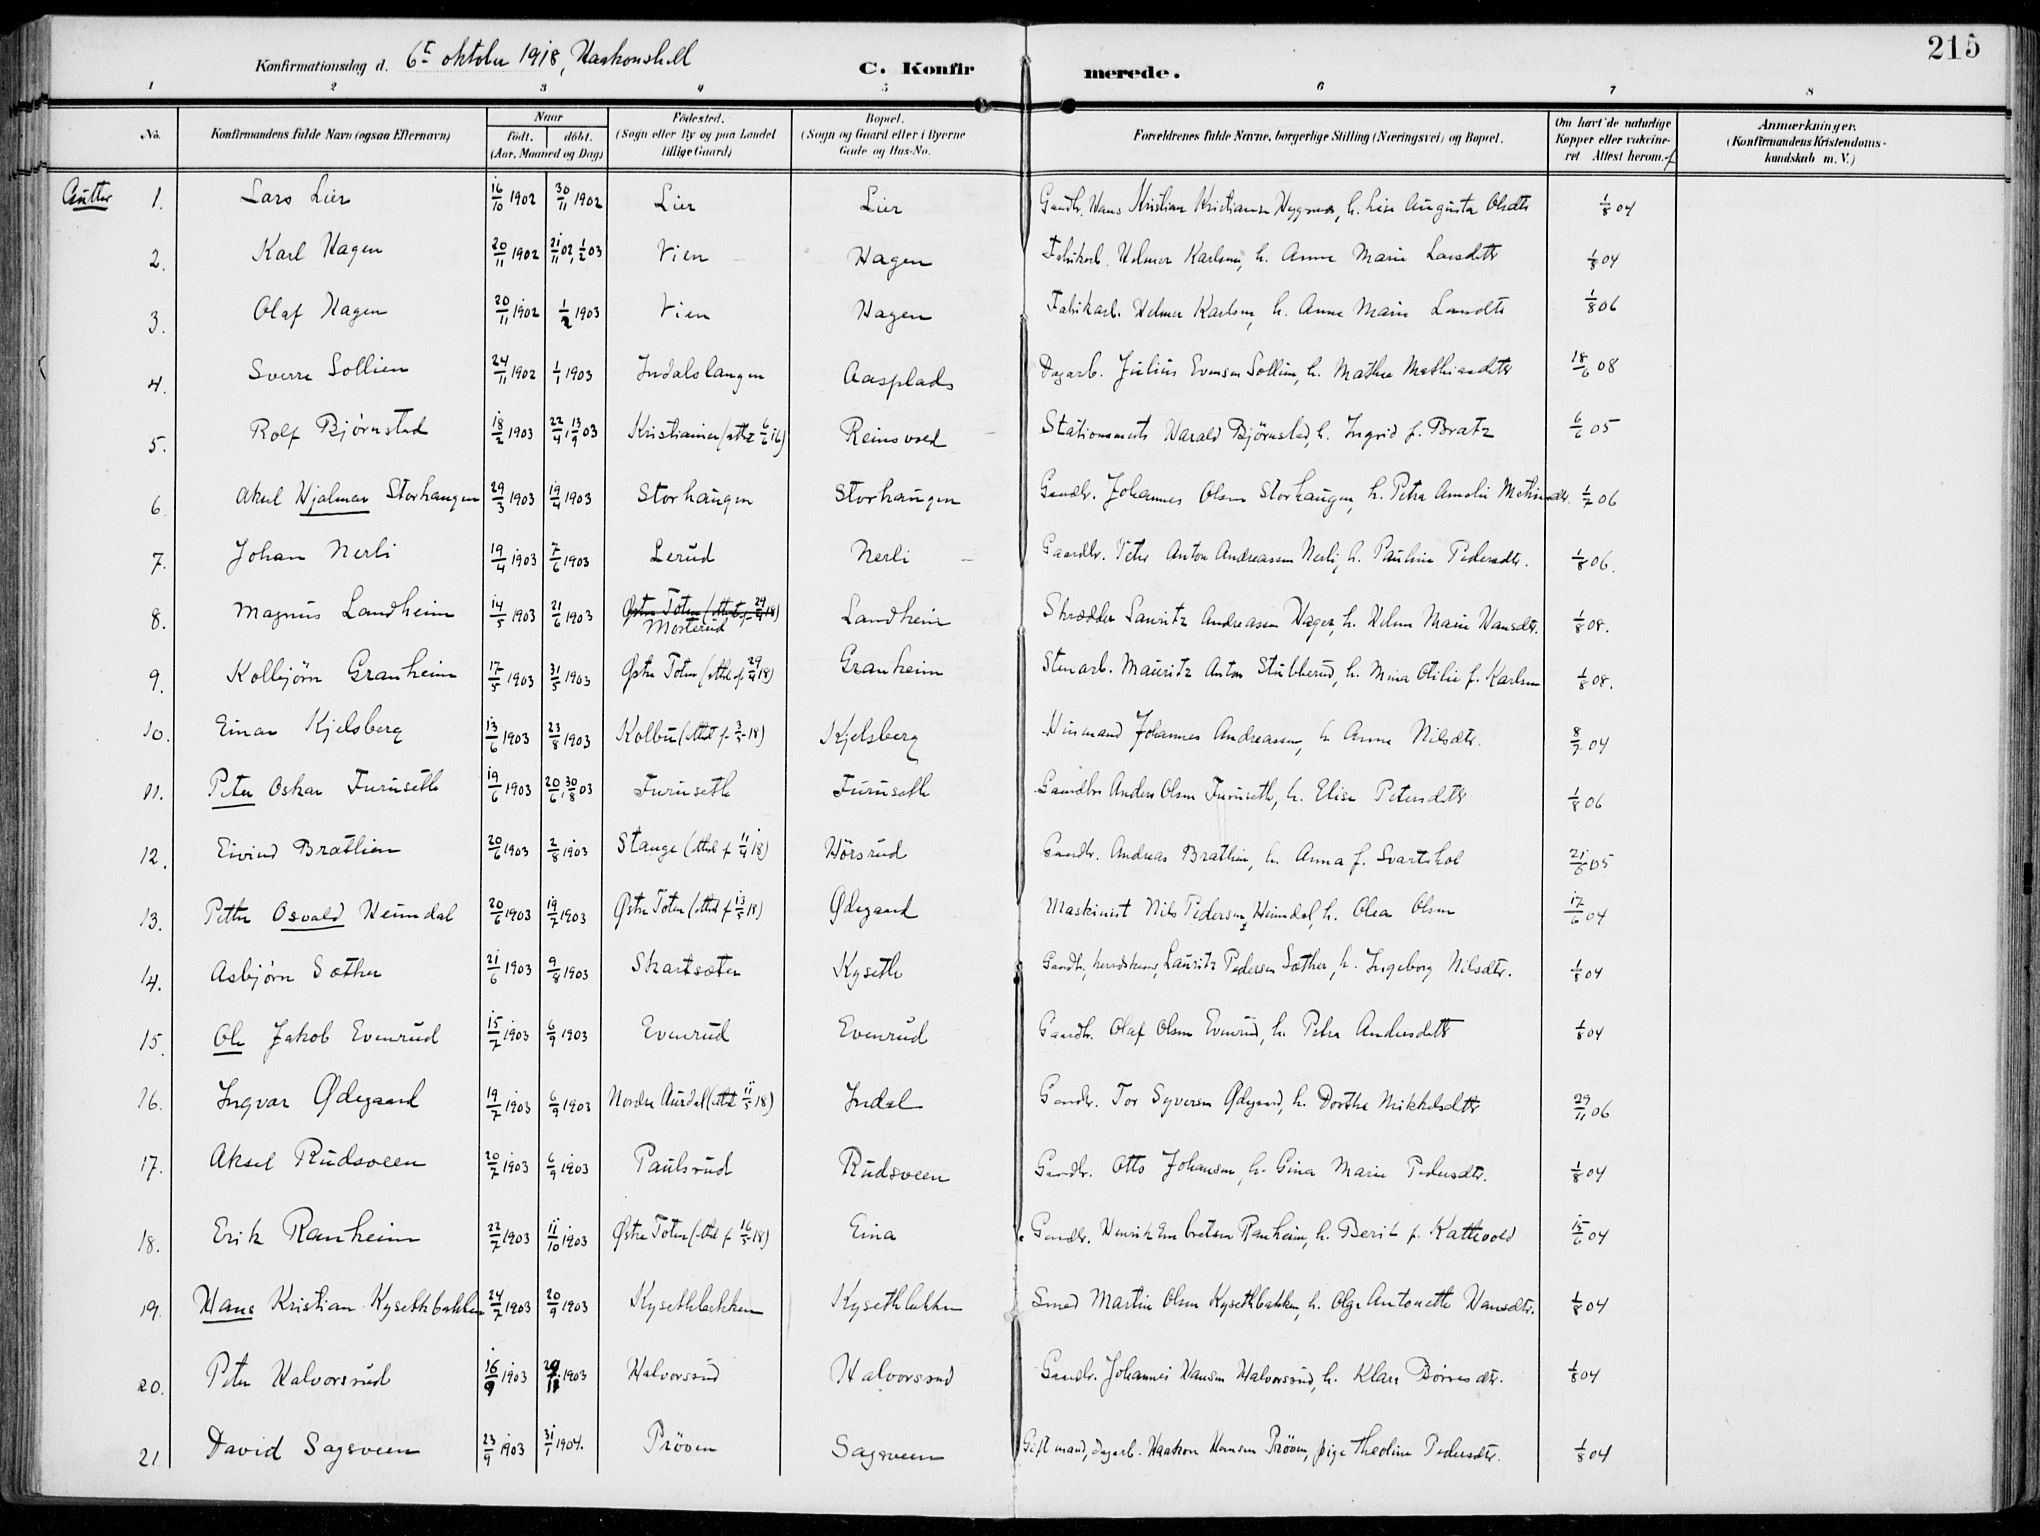 215
Konfirmationsdag d. 6te oktober 1918, Haakonshall
C. Konfirmerede.
1 2 3 4 5 6 7 8
No. Konfirmandens fulde Navn (ogsaa Efternavn) Naar født. døbt. (Aar, Maaned og Dag) Fødested. (Sogn eller By og paa Landet tillige Gaard) Bopæl. (Sogn og Gaard eller i Byerne Gade og Hus-No. Forældrenes fulde Navne, borgerlige Stilling (Næringsvei) og Bopæl. Om havt de naturlige Kopper eller vakcineret Attest herom. Anmærkninger. (Konfirmandens Kristendomskundskab m. V.)
Gutter 1. Lars Lier 16/10 1902 30/11 1902 Lier Lier Gaardbr. Hans Kristian Kristiansen h. Lise Augusta Olsdtr 1/8 04
2. Karl Hagen 20/11 1902 21/11 02, 1/2 03 Vien Hagen Fabrikarb. Helmer Karlsen, h. Anne Marie Larsdtr 1/8 04
3. Olaf Hagen 20/11 1902 1/2 1903 Vien Hagen Fabrikarb. Helmer Karlsen, h. Anne Marie Larsdtr 1/8 06
4. Sverre Sollien 24/11 1902 1/1 1903 Indalslangen Aasplads Dagarb. Julius Evensen Sollien, h. Mathea Mathiasdtr 18/6 08
5. Rolf Bjørnstad 18/2 1903 22/4, 13/9 03 Kristiania (attst 6/6 16) Reinsvoll Stationsmest. Harald Bjørnstad, h. Ingrid f. Bratz 6/6 05
6. Aksel Hjalmar Storhaugen 29/3 1903 19/4 1903 Storhaugen Storhaugen Gaardbr. Johannes Olsen Storhaugen, h. Petra Amalie 1/7 06
7. Johan Nerli 19/4 1903 7/6 1903 Lerud Nerli Gaardbr. Peter Anton Andreassen Nerli, h. Pauline Pedersdtr. 1/8 06.
8. Magnus Landheim 14/5 1903 21/6 1903 Østre Toten (attest f 29/4 18) Mosterud Landheim Skrædder Lauritz Andreassen Hager, h. Helene Marie Hansdtr. 1/8 08.
9. Kolbjørn Granheim 17/5 1903 31/5 1903 Østre Toten (attst f 29/4 18) Granheim Stenarb. Mauritz Anton Stubberud, h. Mina Otilie f. Karlsen 1/8 08.
10. Einar Kjelsberg 13/6 1903 23/8 1903 Kolbu (attst f 3/5 18) Kjelsberg Husmand Johannes Andreassen, h. Anne Nilsdtr. 8/7 04
11. Peter Oskar Furuseth 19/6 1903 20/6, 30/8 03 Furuseth Furuseth Gaardbr Anders Olsen Furuseth, h. Elise Petersdtr 1/8 06
12. Eivind Brathien 20/6 1903 2/8 1903 Stange (attst f 11/4 18) Hörsrud Gaardbr. Andreas Brathien, h. Anna f. Svartshol 21/6 05
13. Petter Osvald Heimdal 20/6 1903 19/7 1903 Østre Toten (attst f 13/5 18) Ødegaard Maskinist Nils Pedersen Heimdal, h. Olea Olsen 17/6 04
14. Asbjørn Sæther 21/6 1903 9/8 1903 Skartsæter Kyseth Gaardbr, Lauritz Pedersen Sæther, h. Ingeborg Nilsdtr. 1/8 04
15. Ole Jakob Evenrud 15/7 1903 6/9 1903 Evenrud Evenrud Gaardbr. Olaf Olsen Evenrud, h. Petra Andersdtr 1/8 04
16. Ingvar Ødegaard 19/7 1903 6/9 1903 Nordre Aurdal (attst 11/5 18) Indal Gaardbr. Tor Syversen Ødegaard, h. Dorthe Mikkelsdtr 29/11 06
17. Aksel Rudsveen 20/7 1903 6/9 1903 Paulsrud Rudsveen Gaardbr. Otto Johansen, h. Gina Marie Pedersdtr. 1/8 04
18. Erik Ranheim 22/7 1903 11/10 1903 Østre Toten (attst f 16/5 18) Eina Gaardbr. Henrik Embretsen Ranheim, h. Berit f. Kattevold 15/6 04
19. Hans Kristian Kysethbakken 24/7 1903 20/9 1903 Kysethbakken Kysethbakken Smed Martin Olsen Kysethbakken, h. Olga Antonette Hansdtr. 1/8 04
20. Peter Halvorsrud 16/9 1903 29/11 1903 Halvorsrud Halvorsrud Gaardbr. Johannes Hansen Halvorsrud, h. Klara Børresdtr. 1/8 04
21 David Sagsveen 23/9 1903 31/1 1904. Prøven Sagsveen Gift mand, dagarb. Haakon Hansen Prøven, pige Theoline Pedersdtr. 1/8 04